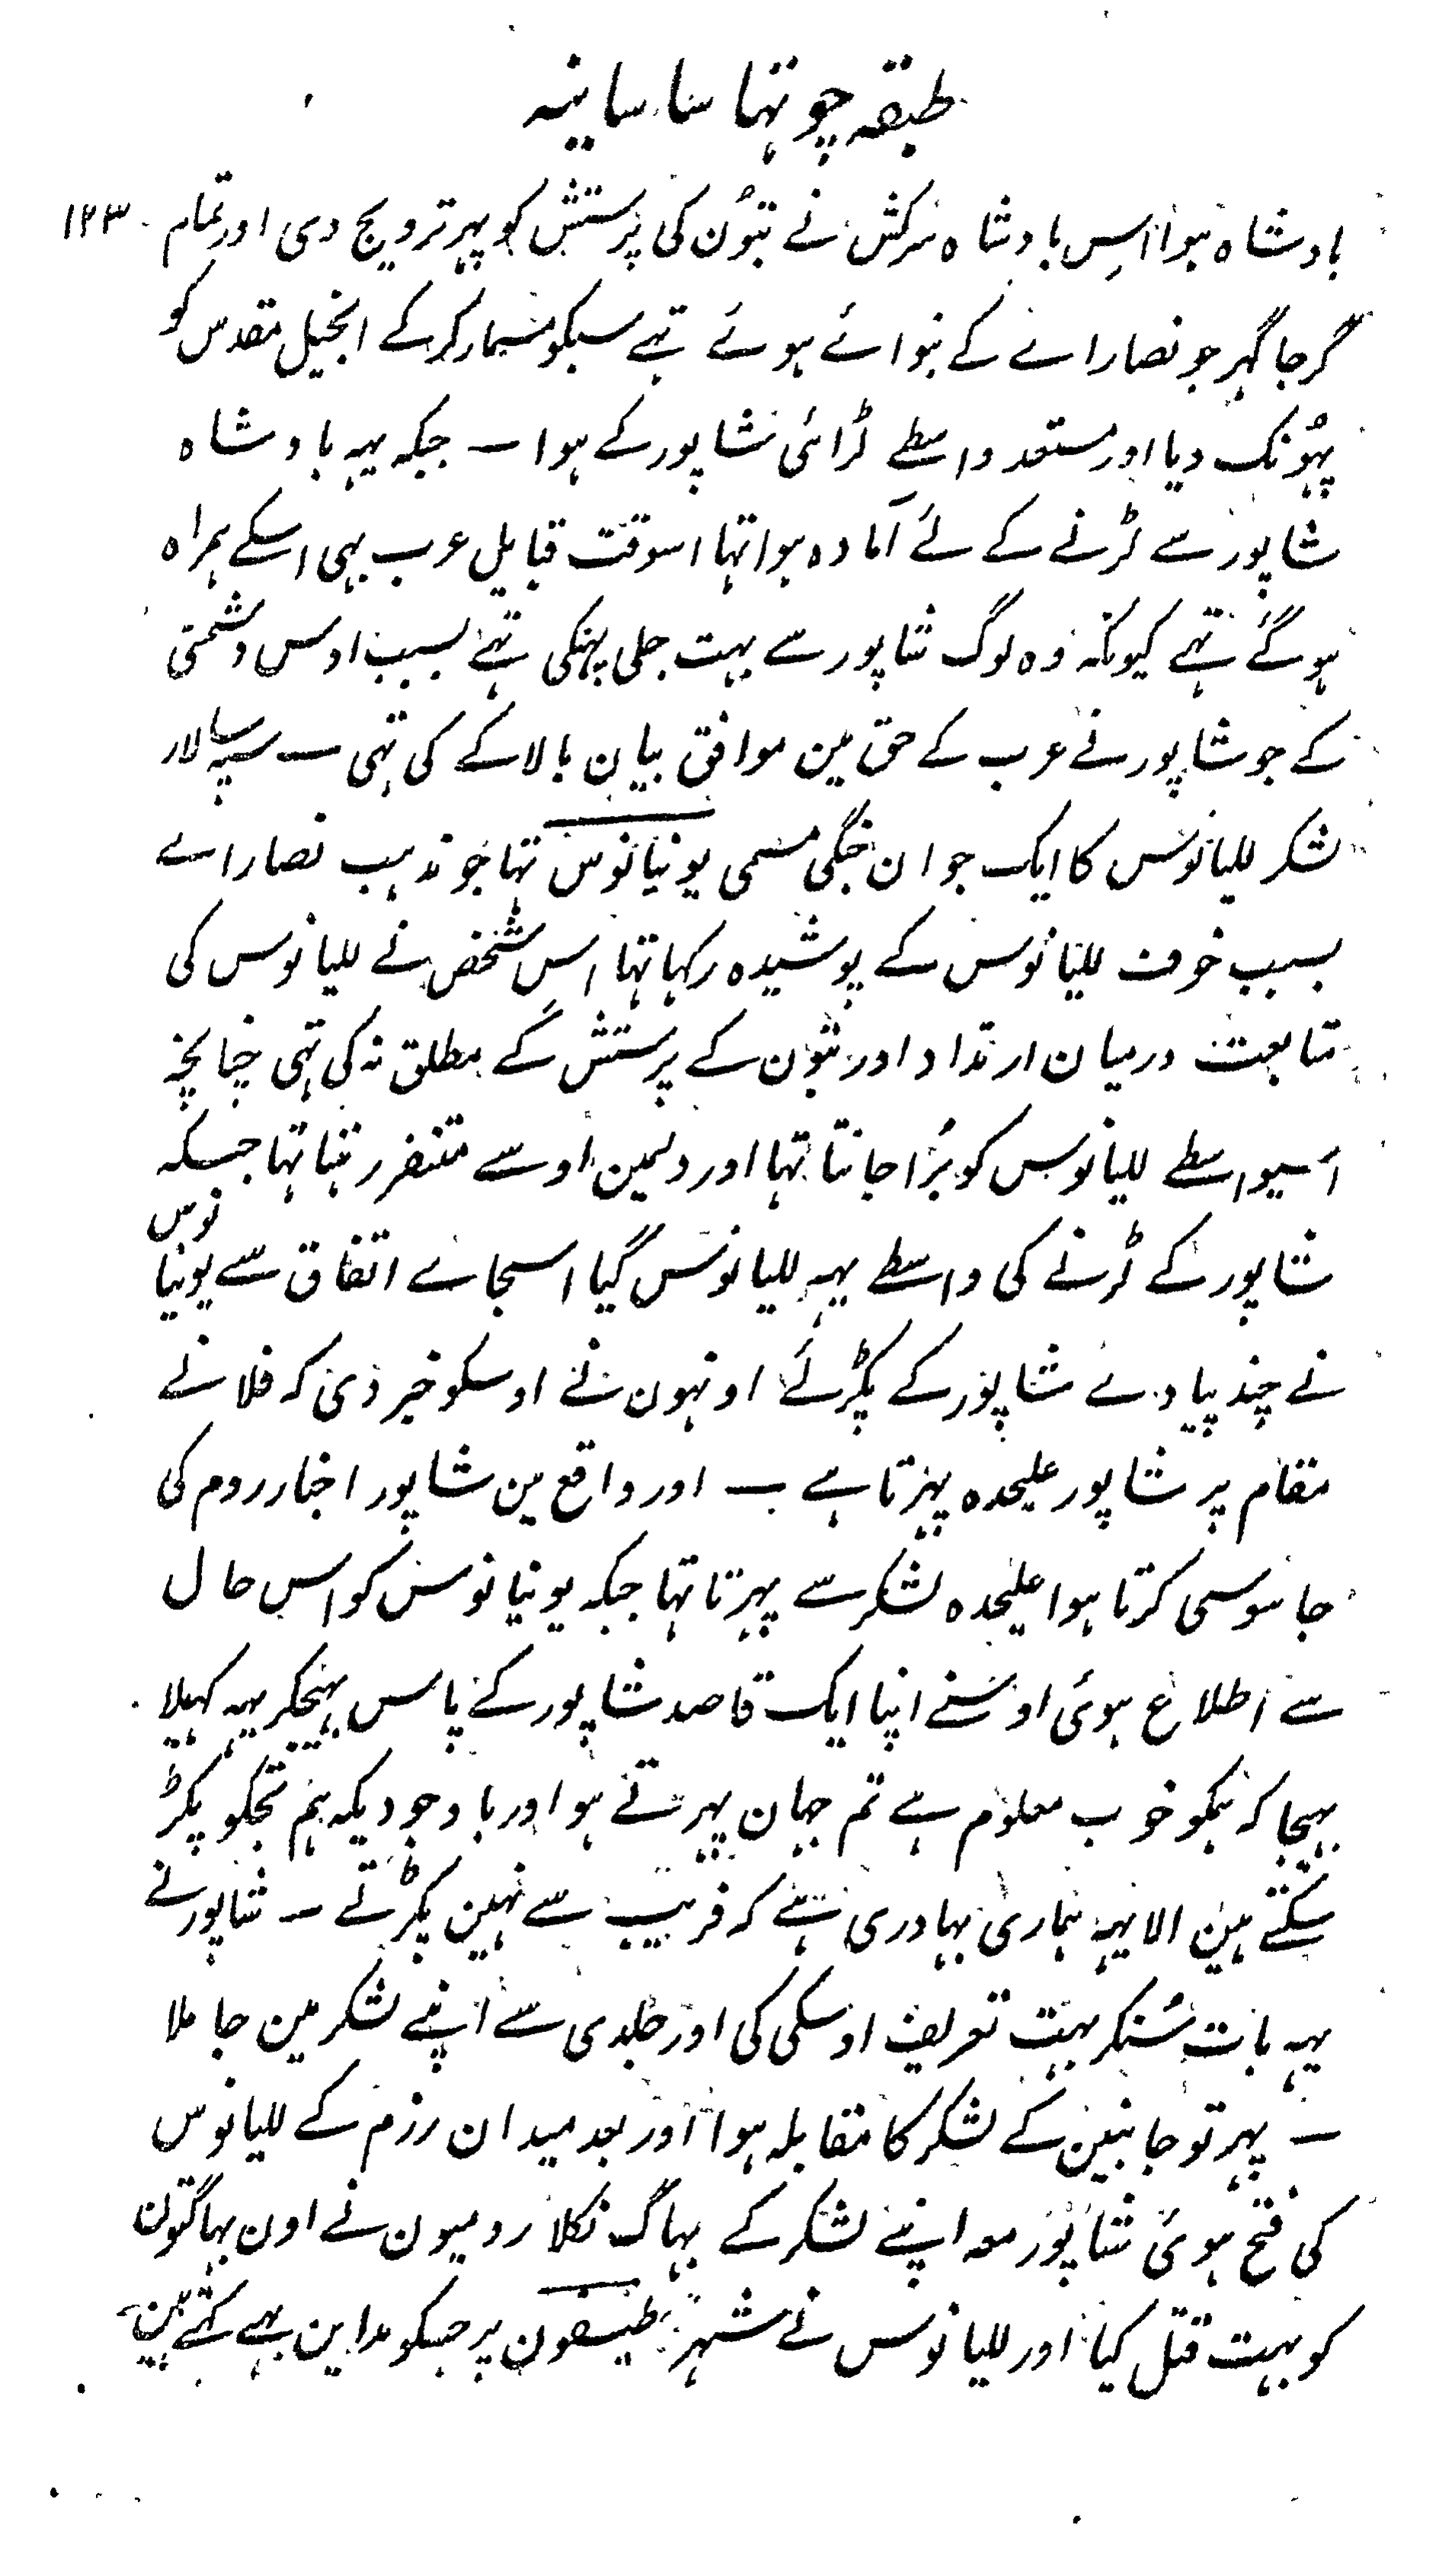 طبقہ چوتہا ساسانیہ
بادشاہ ہوا اسِ بادشاہ سرکش نے بتوُن کی پرستش کو پہر ترویج دی اور تمام ۱۲۳
گرجا گہر جو نصاراے کے بنوائے ہوئے تہے سبکو مسمار کر کے انجیل مقدس کو
پہُونک دیا اور مستعد واسطے لڑائی شاپور کے ہوا ــ جبکہ یہہ بادشاہ
شاپور سے لڑنے کے لئے آمادہ ہوا تہا اسوقت قبایل عرب بہی اسکے ہمراہ
ہو گئے تہے کیونکہ وہ لوگ شاپور سے بہت جلی پہنکی تہے بسبب اوس دشمنی
کے جو شاپور نے عرب کے حق مین موافق بیان بالا کے کی تہی ــ سپہ سالار
لشکر للیانوس کا ایک جوان جنگی مسمی یونیانوس تہا جو مذہب نصاراے
بسبب خوف للیانوس کے پوشیدہ رکہا تہا اس شخص نے للیانوس کی
متابعت درمیان ارتداد اور بتون کے پرستش کے مطلق نہ کی تہی چنانچہ
اسیواسطے للیانوس کو بُرا جانتا تہا اور دلمین اوسے متنفر رہتا تہا جبکہ
شاپور کے لڑنے کی واسطے یہہ للیانوس گیا اسجاے اتفاق سے یونیانوس
نے چند پیادے شاپور کے پکڑلئے اونہون نے اوسکو خبر دی کہ فلانے
مقام پر شاپور علیحدہ پہرتا ہے ــ اور واقع مین شاپور اخبار روم کی
جاسوسی کرتا ہوا علیحدہ لشکر سے پہرتا تہا جبکہ یونیانوس کو اس حال
سے اطلاع ہوئی اوسنے اپنا ایک قاصد شاپور کے پاس بہیجکر یہہ کہلا
بہیجا کہ ہمکو خوب معلوم ہے تم جہان پہرتے ہو اور باوجودیکہ ہم تجکو پکڑ
سکتے ہین الا یہہ ہماری بہادری ہے کہ فریب سے نہین پکڑتے ــ شاپور نے
یہہ بات سُنکر بہت تعریف اوسکی کی اور جلدی سے اپنے لشکر مین جا ملا
ــ پہر تو جانبین کے لشکر کا مقابلہ ہوا اور بعد میدان رزم کے للیانوس
کی فتح ہوئی شاپور معہ اپنے لشکر کے بہاگ نکلا رومیون نے اون بہاگتون
کو بہت قتل کیا اور للیانوس نے شہر طیسفون پر جسکو مداین بہے کہتے ہین